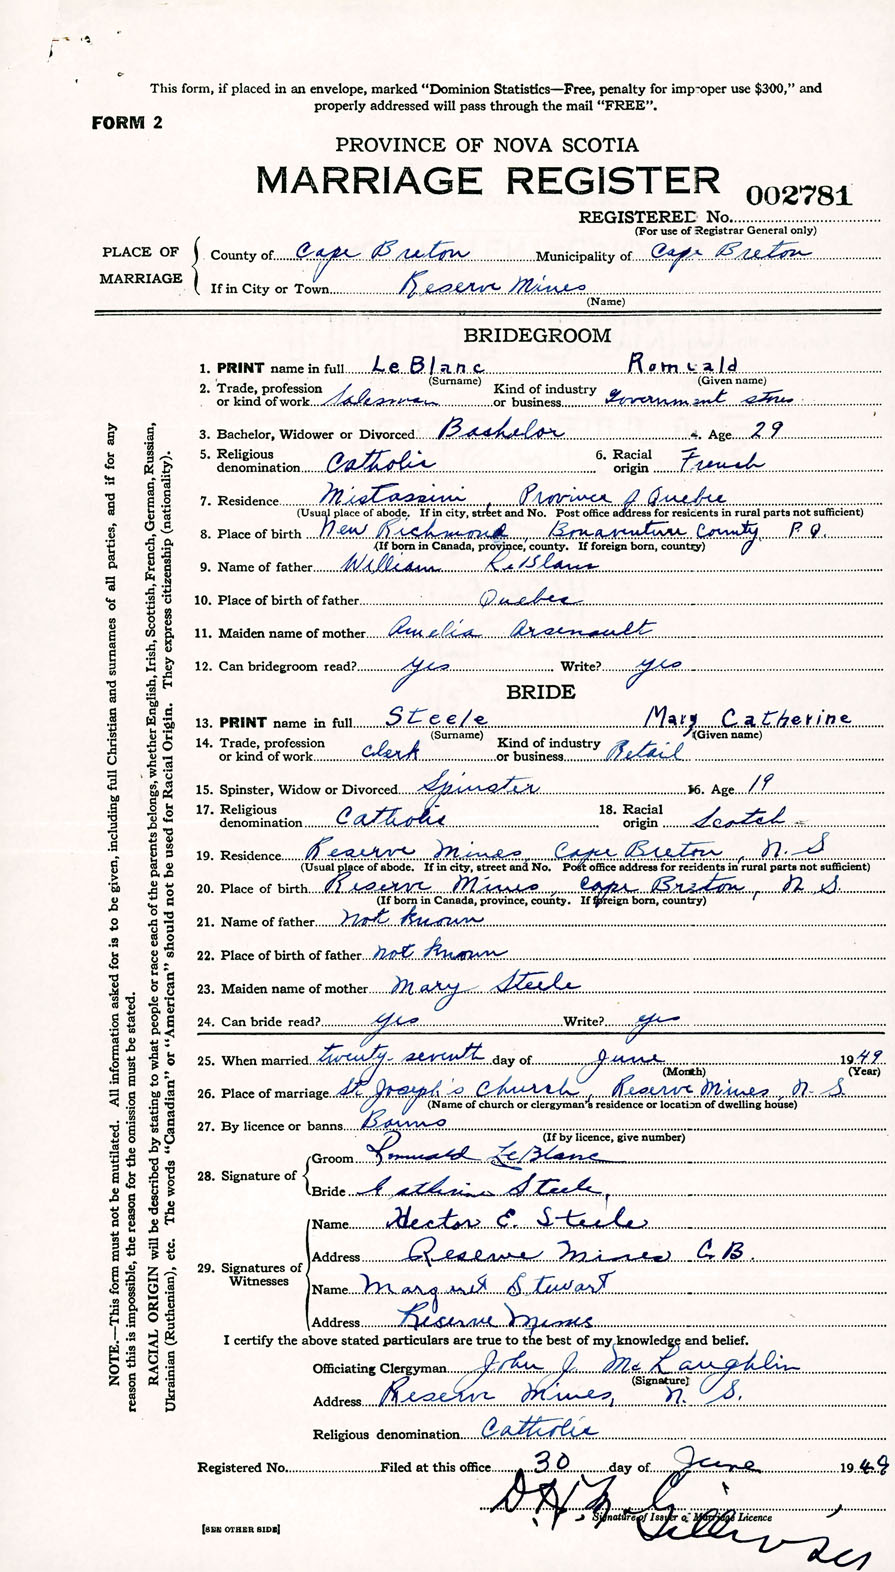 This form, if placed in an envelope, marked "Dominion Statistics—Free, penalty for improper use $300," and
properly addressed will pass through the mail "FREE".
FORM 2
PROVINCE OF NOVA SCOTIA
MARRIAGE REGISTER 002781
REGISTERED No.
(For use of Registrar General only)
PLACE OF MARRIAGE
County of Cape Breton Municipality of Cape Breton
If in City or Town Reserve Mines
(Name)
BRIDEGROOM
1. PRINT name in full LeBlanc Romuald
(Surname) (Given name)
2. Trade, profession or kind of work Salesman Kind of industry or business Government store
3. Bachelor, Widower or Divorced Bachelor 4. Age 29
5. Religious denomination Catholic 6. Racial origin French
7. Residence Mistassini, Province of Quebec
(Usual place of abode. If in city, street and No. Post office address for residents in rural parts not sufficient)
8. Place of birth New Richmond, Bonaventure County, P.Q.
(If born in Canada, province, county. If foreign born, country)
9. Name of father William LeBlanc
10. Place of birth of father Quebec
11. Maiden name of mother Amelia Arsenault
12. Can bridegroom read? yes Write? yes
BRIDE
13. PRINT name in full Steele Mary Catherine
(Surname) (Given name)
14. Trade, profession or kind of work Clerk Kind of industry or business Retail
15. Spinster, Widow or Divorced Spinster 16. Age 19
17. Religious denomination Catholic 18. Racial origin Scotch
19. Residence Reserve Mines, Cape Breton, N. S
(Usual place of abode. If in city, street and No. Post office address for residents in rural parts not sufficient)
20. Place of birth Reserve Mines, Cape Breton, N. S.
(If born in Canada, province, county. If foreign born, country)
21. Name of father Not known
22. Place of birth of father not known
23. Maiden name of mother Mary Steele
24. Can bride read? yes Write? yes
25. When married twenty-seventh day of June 1949
(Month) (Year)
26. Place of marriage St. Joseph's Church, Reserve Mines, N. S.
(Name of church or clergyman's residence or location of dwelling house)
27. By licence or banns Banns
(If by licence, give number)
28. Signature of
Groom Romuald LeBlanc
Bride Catherine Steele,
29. Signatures of Witnesses
Name Hector E. Steele
Address Reserve Mines C.B.
Name Margaret Stewart
Address Reserve Mines
I certify the above stated particulars are true to the best of my knowledge and belief.
Officiating Clergyman John J. McLaughlin
(Signature)
Address Reserve Mines, N. S.
Religious denomination Catholic
Registered No. Filed at this office 30 day of June 1949
Signature of Issuer of Marriage Licence
[SEE OTHER SIDE]
NOTE.—This form must not be mutilated. All information asked for is to be given, including full Christian and surnames of all parties, and if for any
reason this is impossible, the reason for the omission must be stated.
RACIAL ORIGIN will be described by stating to what people or race each of the parents belongs, whether English, Irish, Scottish, French, German, Russian,
Ukrainian (Ruthenian), etc. The words "Canadian" or "American" should not be used for Racial Origin. They express citizenship (nationality).